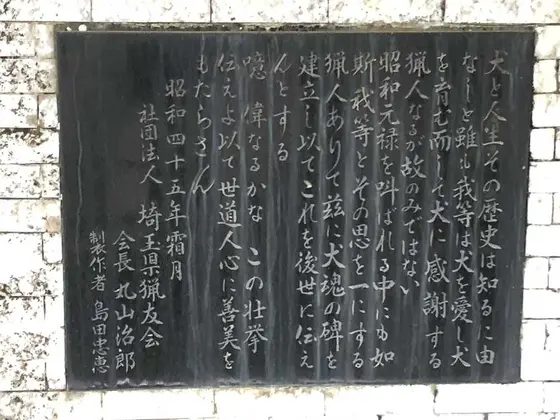 犬と人生その歴史は知るに由
なしと雖も我等は犬を愛し犬
を育む而して犬に感謝する
猟人なるが故のみではない
昭和元禄を叫ばれる中にも如
斯我等とその思を一にする
猟人ありて茲に犬魂の碑を
建立し以てこれを後世に伝え
んとする
噫 偉なるかな この壮挙
伝えよ以て世道人心に善美を
もたらさん
昭和四十五年霜月
社団法人 埼玉県猟友会
会長 丸山治郎
制作者 島田忠恵